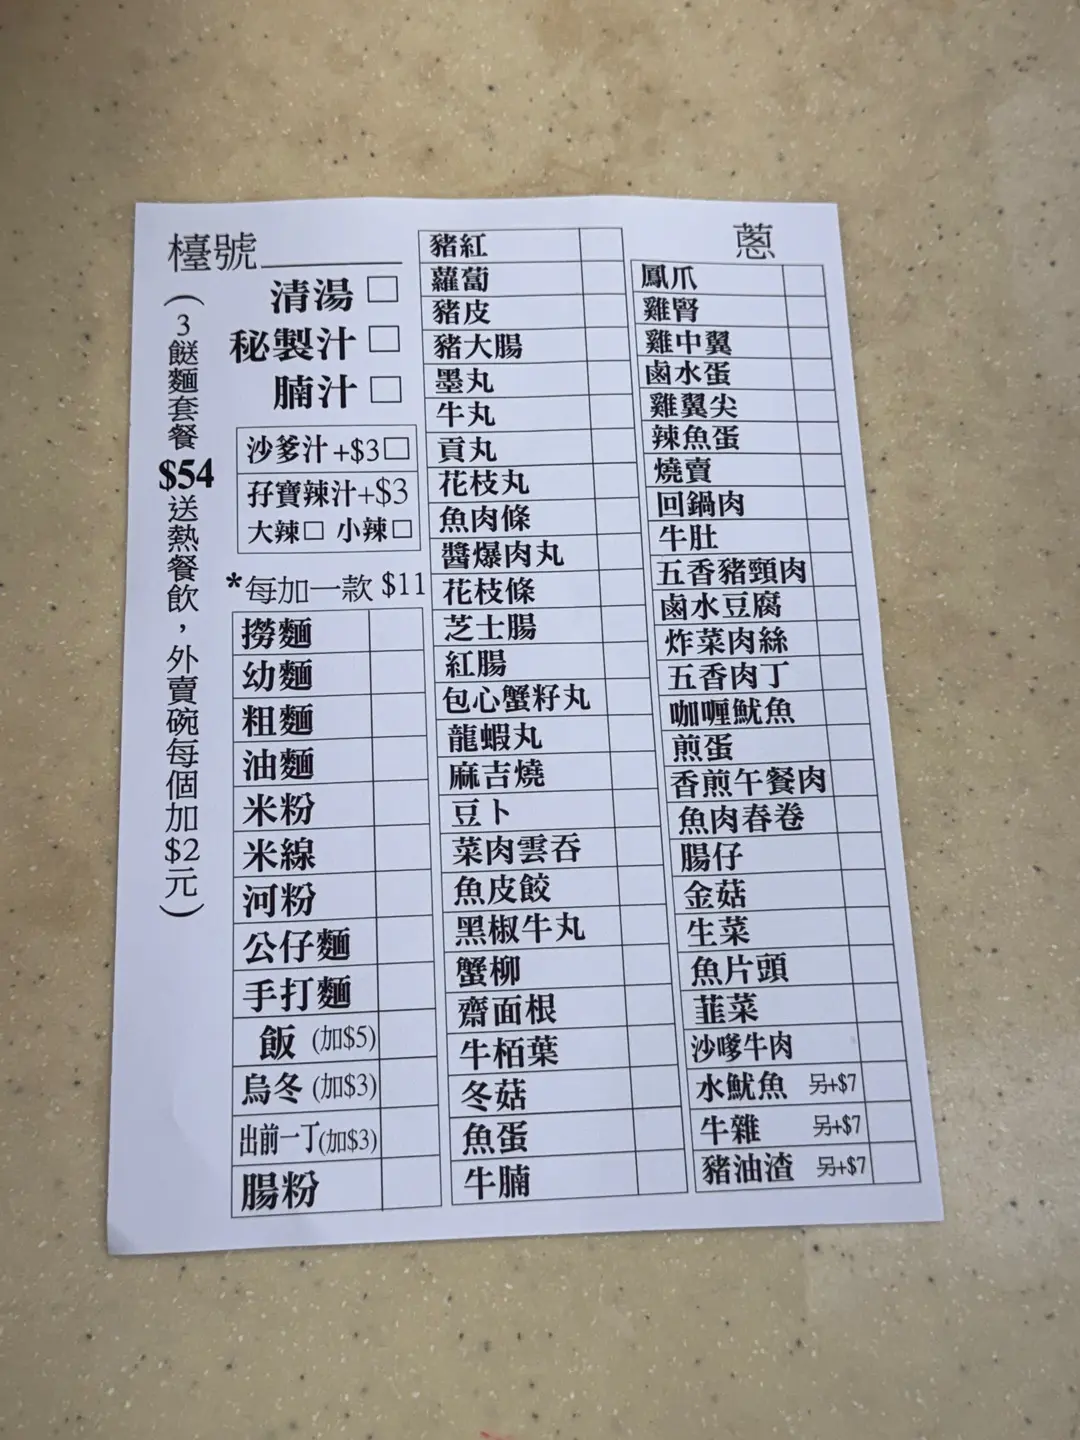 檯號
(3餸麵套餐$54送熱餐飲，外賣碗每個加$2元)
清湯 □
秘製汁 □
腩汁 □
沙爹汁+$3□
孖寶辣汁+$3
大辣□ 小辣□
*每加一款 $11
撈麵
幼麵
粗麵
油麵
米粉
米線
河粉
公仔麵
手打麵
飯 (加$5)
烏冬 (加$3)
出前一丁(加$3)
腸粉
豬紅
蘿蔔
豬皮
豬大腸
墨丸
牛丸
貢丸
花枝丸
魚肉條
醬爆肉丸
花枝條
芝士腸
紅腸
包心蟹籽丸
龍蝦丸
麻吉燒
豆卜
菜肉雲吞
魚皮餃
黑椒牛丸
蟹柳
齋面根
牛栢葉
冬菇
魚蛋
牛腩
蔥
鳳爪
雞腎
雞中翼
鹵水蛋
雞翼尖
辣魚蛋
燒賣
回鍋肉
牛肚
五香豬頸肉
鹵水豆腐
炸菜肉絲
五香肉丁
咖喱魷魚
煎蛋
香煎午餐肉
魚肉春卷
腸仔
金菇
生菜
魚片頭
韮菜
沙嗲牛肉
水魷魚 另+$7
牛雜 另+$7
豬油渣 另+$7